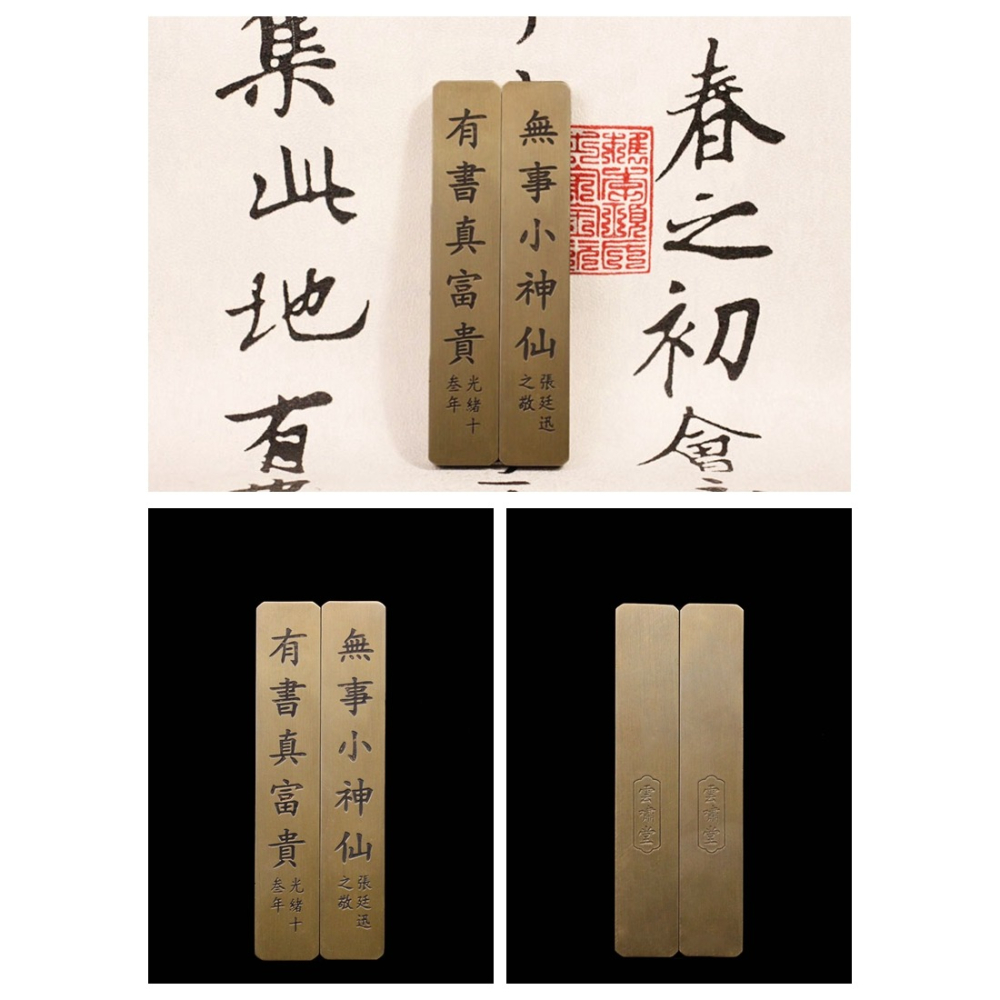 春之初會
集此地有
無事小神仙
張廷迅
之敬
有書真富貴
光緒十
叁年
無事小神仙
張廷迅
之敬
有書真富貴
光緒十
叁年
雲肅堂
雲肅堂